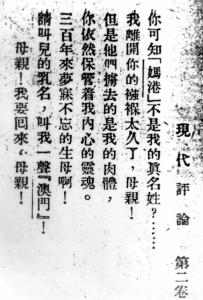 現代評論 第二卷
你可知「媽港」不是我的真名姓?……
我離開你的襁褓太久了,母親!
但是他們擄去的是我的肉體,
你依然保管着我內心的靈魂。
三百年來夢寐不忘的生母啊!
請叫兒的乳名,叫我一聲「澳門」!
母親!我要回來,母親!